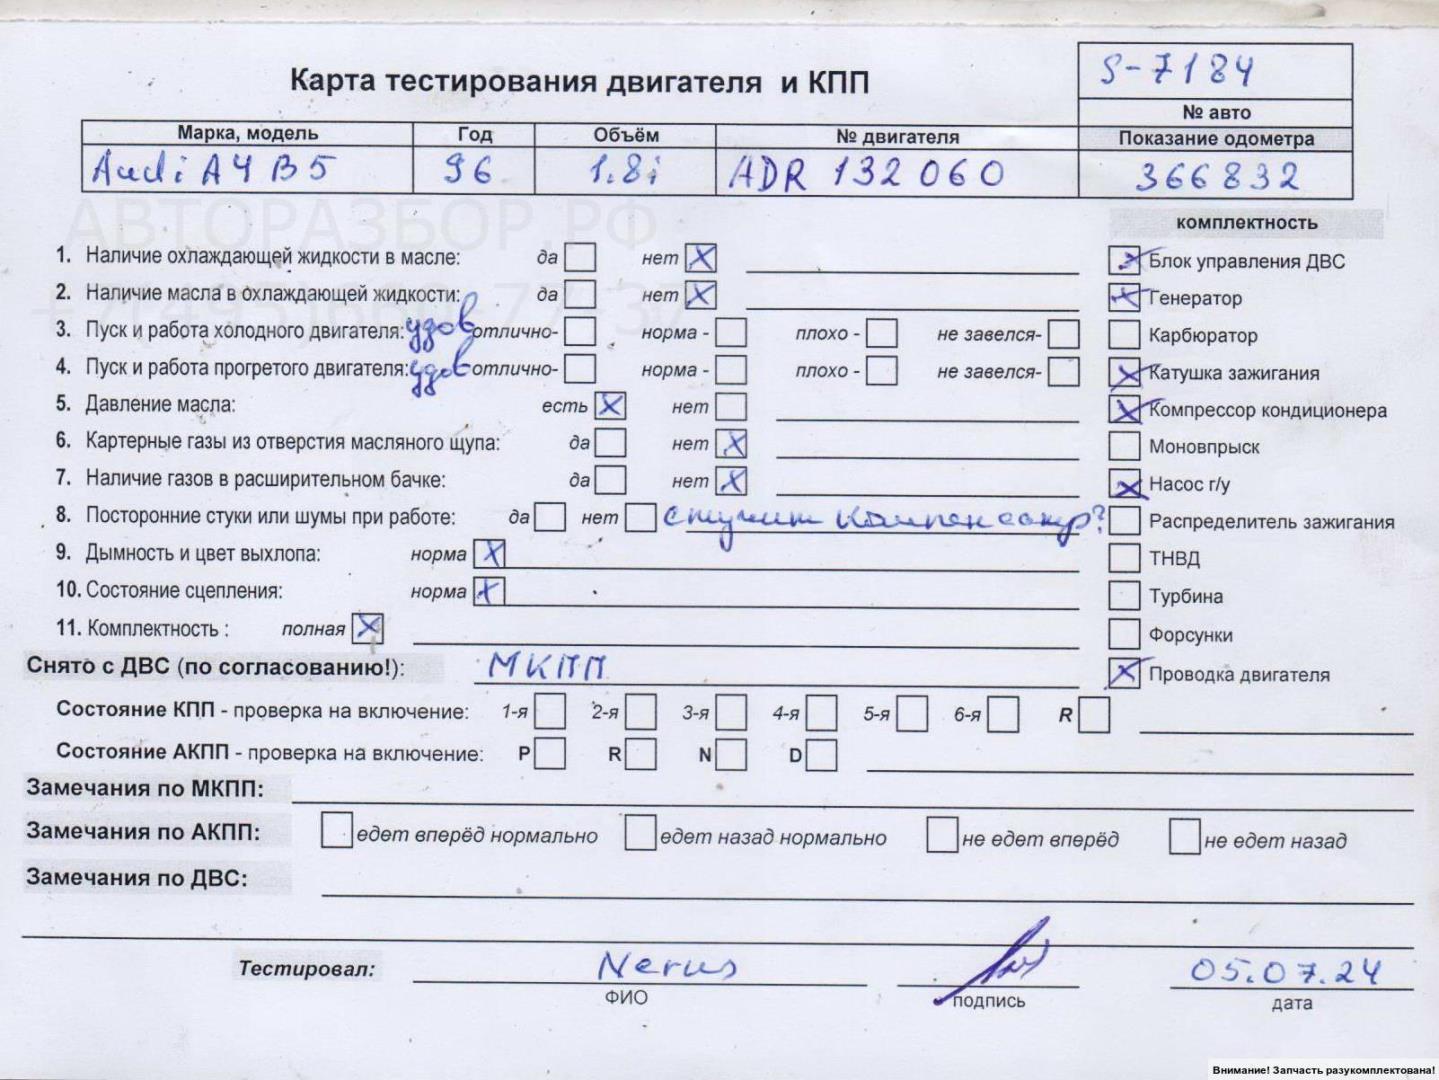 S-7184
Карта тестирования двигателя и КПП
№ авто
Марка, модель Год Объём № двигателя Показание одометра
Audi A4 B5 96 1.8i ADR 132060 366832
АВТОРАЗБОР.РФ
комплектность
1. Наличие охлаждающей жидкости в масле: да нет X Блок управления ДВС
2. Наличие масла в охлаждающей жидкости: да нет X Генератор
3. Пуск и работа холодного двигателя: удов отлично- норма - плохо - не завелся- Карбюратор
4. Пуск и работа прогретого двигателя: удов отлично- норма - плохо - не завелся- Катушка зажигания
5. Давление масла: есть X нет Компрессор кондиционера
6. Картерные газы из отверстия масляного щупа: да нет X Моновпрыск
7. Наличие газов в расширительном бачке: да нет X Насос г/у
8. Посторонние стуки или шумы при работе: да нет стучит компенсатор? Распределитель зажигания
9. Дымность и цвет выхлопа: норма X ТНВД
10. Состояние сцепления: норма X Турбина
11. Комплектность : полная X Форсунки
Снято с ДВС (по согласованию!): МКПП Проводка двигателя
Состояние КПП - проверка на включение: 1-я 2-я 3-я 4-я 5-я 6-я R
Состояние АКПП - проверка на включение: P R N D
Замечания по МКПП:
Замечания по АКПП: едет вперёд нормально едет назад нормально не едет вперёд не едет назад
Замечания по ДВС:
Тестировал: Nerus 05.07.24
ФИО подпись дата
Внимание! Запчасть разукомплектована!